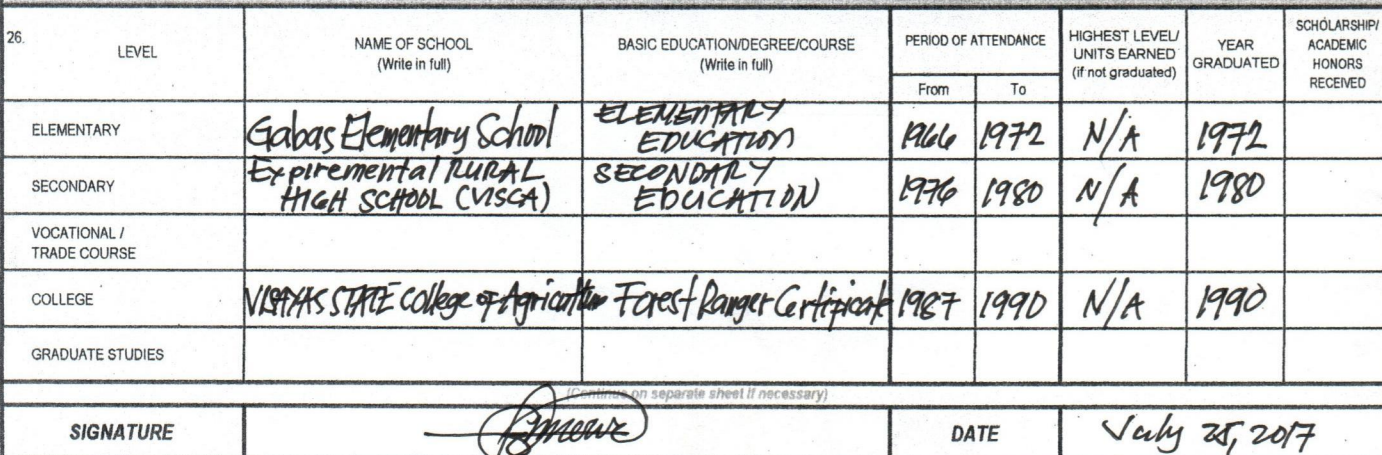 26.
LEVEL
NAME OF SCHOOL
(Write in full)
BASIC EDUCATION/DEGREE/COURSE
(Write in full)
PERIOD OF ATTENDANCE
From To
HIGHEST LEVEL/
UNITS EARNED
(if not graduated)
YEAR
GRADUATED
SCHOLARSHIP/
ACADEMIC
HONORS
RECEIVED
ELEMENTARY
Gabas Elementary School
ELEMENTARY
EDUCATION
1966 1972 N/A 1972
SECONDARY
Expiremental RURAL
HIGH SCHOOL (VISCA)
SECONDARY
EDUCATION
1976 1980 N/A 1980
VOCATIONAL /
TRADE COURSE
COLLEGE
VISAYAS STATE College of Agriculture Forest Ranger Certificate 1987 1990 N/A 1990
GRADUATE STUDIES
(Continue on separate sheet if necessary)
SIGNATURE DATE July 25, 2017